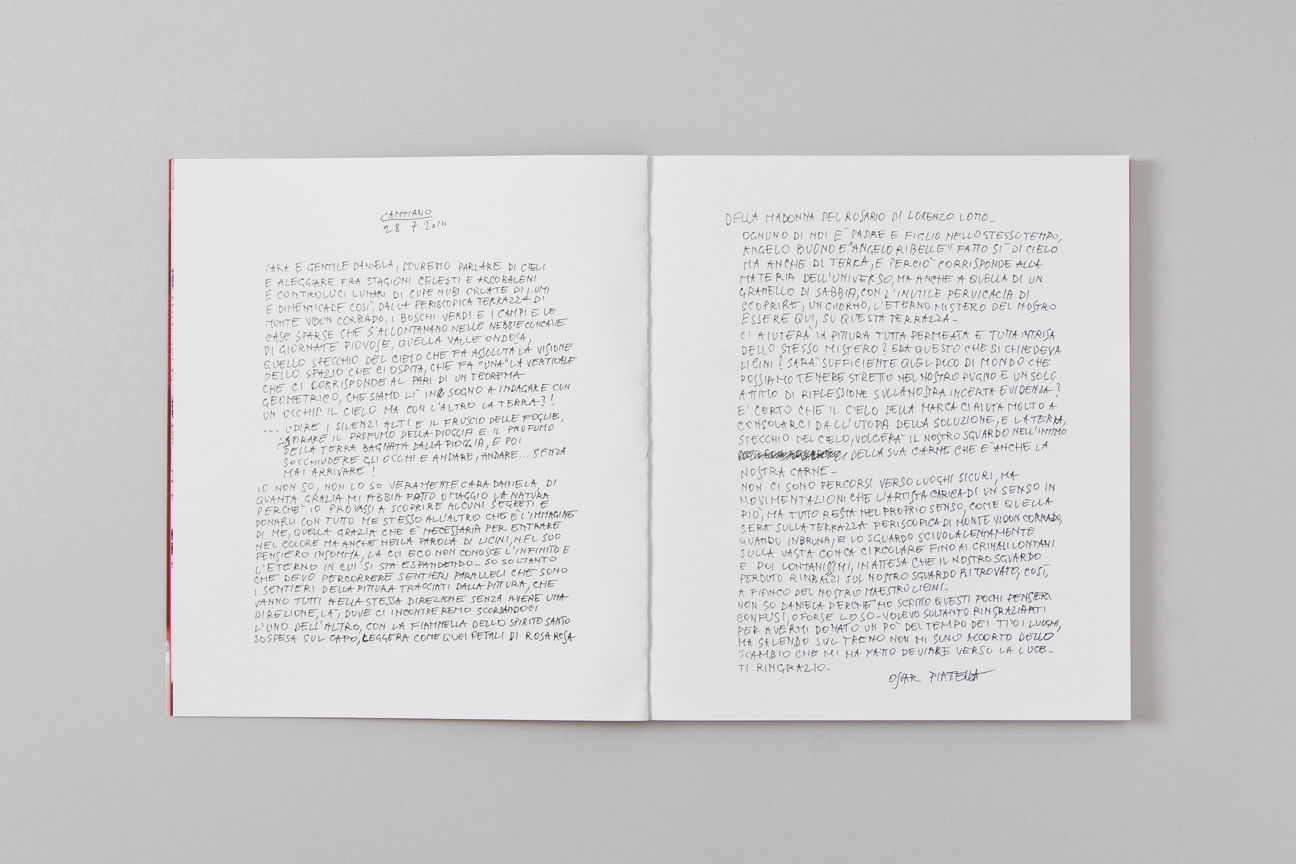 CANTIANO
28.7 2014
CARA E GENTILE DANIELA, DOVREMO PARLARE DI CIELI
E ALEGGIARE FRA STAGIONI CELESTI E ARCOBALENI
E CONTROLUCI LUNARI DI CUPE NUBI ORLATE DI LUMI
E DIMENTICARE COSÌ, DALLA PERISCOPICA TERRAZZA DI
MONTE VIDON CORRADO, I BOSCHI VERDI E I CAMPI E LE
CASE SPARSE CHE S'ALLONTANANO NELLE NEBBIE CONCAVE
DI GIORNATE PIOVOSE, QUELLA VALLE ONDOSA,
QUELLO SPECCHIO DEL CIELO CHE FA ASSOLUTA LA VISIONE
DELLO SPAZIO CHE CI OSPITA, CHE FA "UNA" LA VERTICALE
CHE CI CORRISPONDE AL PARI DI UN TEOREMA
GEOMETRICO, CHE SIAMO LÌ IN SOGNO A INDAGARE CON
UN OCCHIO IL CIELO MA CON L'ALTRO LA TERRA?!
... UDIRE I SILENZI ALTI E IL FRUSCIO DELLE FOGLIE,
ASPIRARE IL PROFUMO DELLA PIOGGIA E IL PROFUMO
DELLA TERRA BAGNATA DALLA PIOGGIA, E POI
SOCCHIUDERE GLI OCCHI E ANDARE, ANDARE... SENZA
MAI ARRIVARE!
IO NON SO, NON LO SO VERAMENTE CARA DANIELA, DI
QUANTA GRAZIA MI ABBIA FATTO OMAGGIO LA NATURA
PERCHÈ IO PROVASSI A SCOPRIRE ALCUNI SEGRETI E
DONARLI CON TUTTO ME STESSO ALL'ALTRO CHE È L'IMMAGINE
DI ME, QUELLA GRAZIA CHE È NECESSARIA PER ENTRARE
NEL COLORE MA ANCHE NELLA PAROLA DI LICINI, NEL SUO
PENSIERO INSOMMA, LA CUI ECO NON CONOSCE L'INFINITO E
L'ETERNO IN CUI SI STA ESPANDENDO_ SO SOLTANTO
CHE DEVO PERCORRERE SENTIERI PARALLELI CHE SONO
I SENTIERI DELLA PITTURA TRACCIATI DALLA PITTURA, CHE
VANNO TUTTI NELLA STESSA DIREZIONE SENZA AVERE UNA
DIREZIONE, LÀ, DOVE CI INCONTREREMO SCORDANDOCI
L'UNO DELL'ALTRO, CON LA FIAMMELLA DELLO SPIRITO SANTO
SOSPESA SUL CAPO, LEGGERA COME QUEI PETALI DI ROSA ROSA
DELLA MADONNA DEL ROSARIO DI LORENZO LOTTO_
OGNUNO DI NOI È PADRE E FIGLIO NELLO STESSO TEMPO,
ANGELO BUONO E "ANGELO RIBELLE" FATTO SÌ DI CIELO
MA ANCHE DI TERRA, E PERCIÒ CORRISPONDE ALLA
MATERIA DELL'UNIVERSO, MA ANCHE A QUELLA DI UN
GRANELLO DI SABBIA, CON L'INUTILE PERVICACIA DI
SCOPRIRE, UN GIORNO, L'ETERNO MISTERO DEL NOSTRO
ESSERE QUI, SU QUESTA TERRAZZA_
CI AIUTERÀ LA PITTURA TUTTA PERMEATA E TUTTA INTRISA
DELLO STESSO MISTERO? ERA QUESTO CHE SI CHIEDEVA
LICINI? SARÀ SUFFICIENTE QUEL POCO DI MONDO CHE
POSSIAMO TENERE STRETTO NEL NOSTRO PUGNO E UN SOLO
ATTIMO DI RIFLESSIONE SULLA NOSTRA INCERTA EVIDENZA?
E' CERTO CHE IL CIELO DELLA MARCA CI AIUTA MOLTO A
CONSOLARCI DALL'UTOPIA DELLA SOLUZIONE, E LA TERRA,
SPECCHIO DEL CIELO, VOLGERÀ IL NOSTRO SGUARDO NELL'INTIMO
DELLA SUA CARNE CHE È ANCHE LA
NOSTRA CARNE_
NON CI SONO PERCORSI VERSO LUOGHI SICURI, MA
MOVIMENTAZIONI CHE L'ARTISTA CARICA DI UN SENSO IN
PIÙ, MA TUTTO RESTA NEL PROPRIO SENSO, COME QUELLA
SERA SULLA TERRAZZA PERISCOPICA DI MONTE VIDON CORRADO,
QUANDO IMBRUNA, E LO SGUARDO SCIVOLA LENTAMENTE
SULLA VASTA CONCA CIRCOLARE FINO AI CRINALI LONTANI
E POI LONTANISSIMI, IN ATTESA CHE IL NOSTRO SGUARDO
PERDUTO RIMBALZI SUL NOSTRO SGUARDO RITROVATO, COSÌ,
A FIANCO DEL NOSTRO MAESTRO LICINI_
NON SO DANIELA PERCHÈ HO SCRITTO QUESTI POCHI PENSIERI
CONFUSI, O FORSE LO SO_VOLEVO SOLTANTO RINGRAZIARTI
PER AVERMI DONATO UN PÒ DEL TEMPO DEI TUOI LUOGHI,
MA SALENDO SUL TRENO NON MI SONO ACCORTO DELLO
SCAMBIO CHE MI HA FATTO DEVIARE VERSO LA LUCE_
TI RINGRAZIO_
OSCAR PIATTELLA